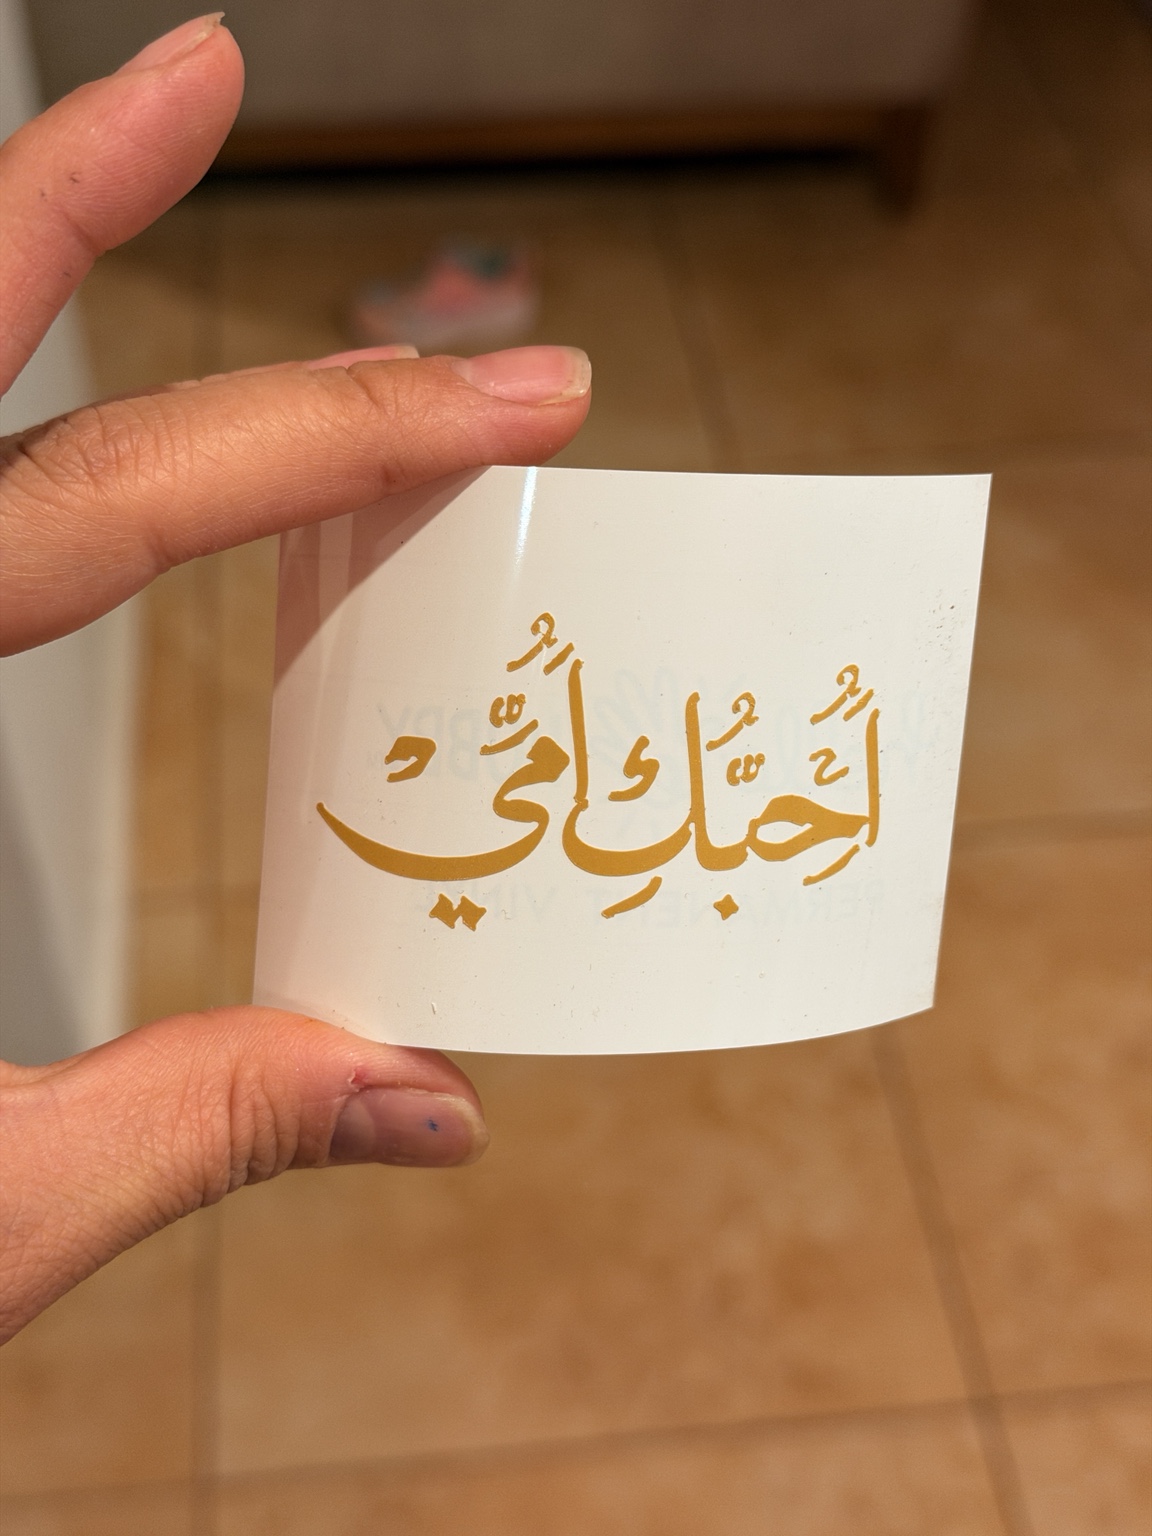 أُحِبُّكِ أُمِّيْ